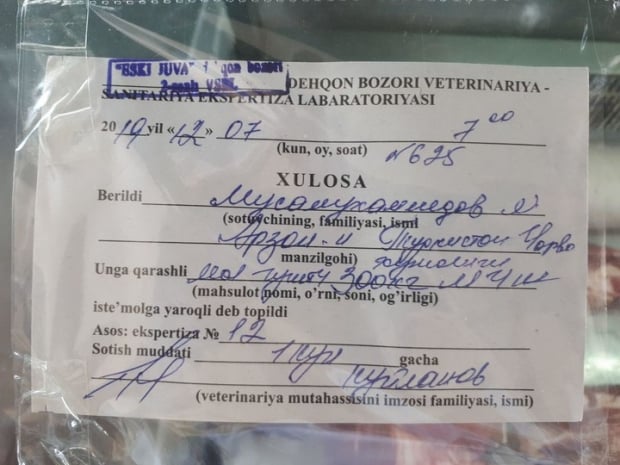 "ESKI JUVA" dehqon bozori
2-sonli VSEL
DEHQON BOZORI VETERINARIYA -
SANITARIYA EKSPERTIZA LABARATORIYASI
2019 yil «12» 07 7 00
(kun, oy, soat) №625
XULOSA
Berildi Мусамухаммедов М
(sotuvchining, familiyasi, ismi
Арзон-и Туркистон Чорва
manzilgohi)
Unga qarashli мол гушти 300кг
(mahsulot nomi, o'rni, soni, og'irligi)
iste'molga yaroqli deb topildi
Asos: ekspertiza № 12
Sotish muddati 1 кун gacha
(veterinariya mutahassisini imzosi familiyasi, ismi)